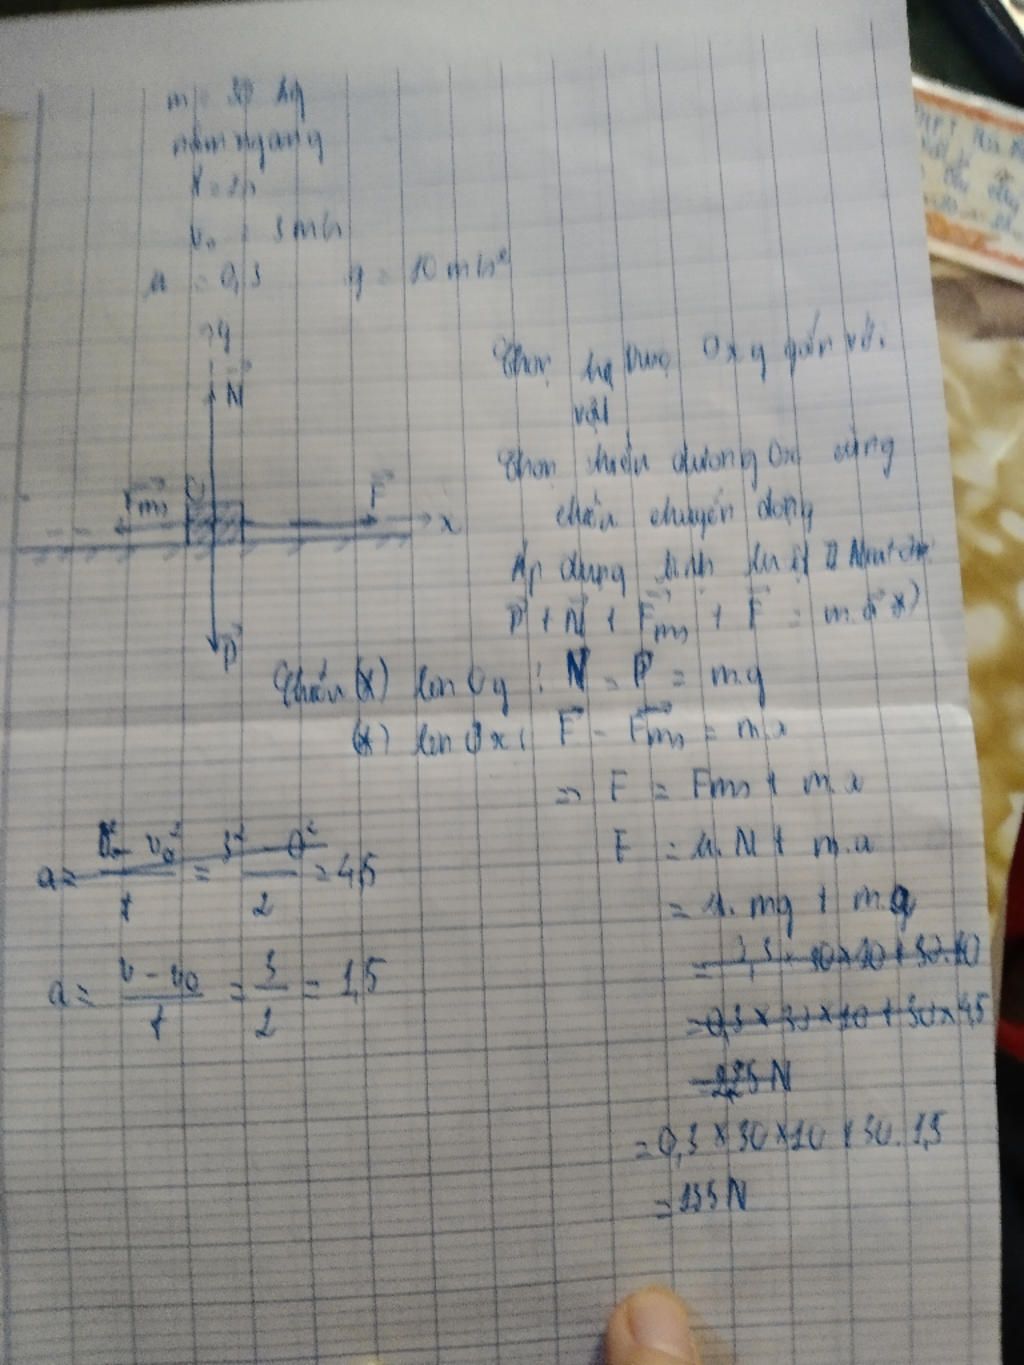 m = 30 kg
nằm ngang
t = 2s
v₀ = 3 m/s
μ = 0,3 g = 10 m/s²
y
N⃗
Fms⃗ O F⃗ x
P⃗
Chọn hệ trục Oxy gắn với
vật
Chọn chiều dương Ox cùng
chiều chuyển động
Áp dụng định luật II Newton:
P⃗ + N⃗ + Fms⃗ + F⃗ = m.a⃗ (*)
Chiếu (*) lên Oy : N = P = m.g
(*) lên Ox : F⃗ - Fms⃗ = m.a
=> F = Fms + m.a
F = μ.N + m.a
= μ.mg + m.a
= 0,3 × 30 × 10 + 30 × 4,5
= 225 N
= 0,3 × 30 × 10 + 30. 1,5
= 135 N
= 3² - 0² / 2 = 4,5
a = v - v₀ / t = 3 / 2 = 1,5